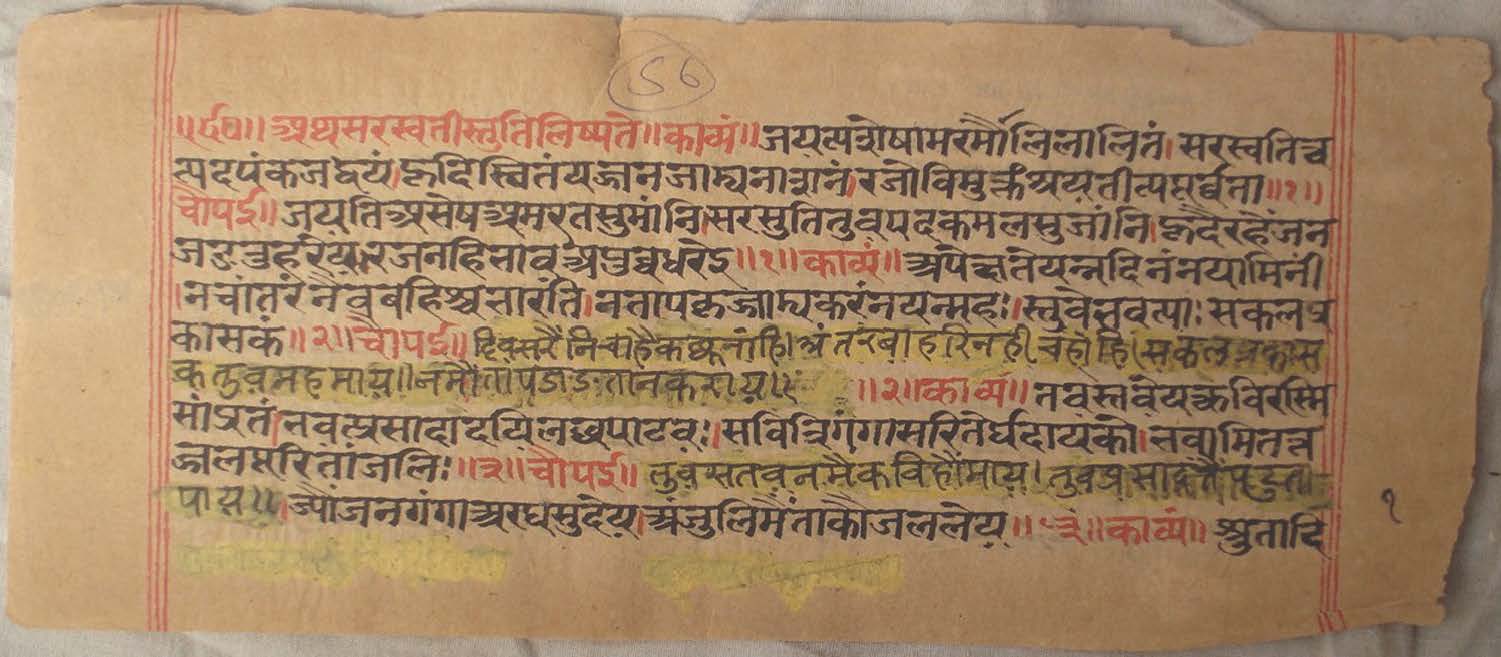 56
॥र्द०॥ अथसरस्वतीस्तुतिलिष्यते॥काव्यं॥जयत्यशेषामरमौलिलालितं।सरस्वतित्व
त्पदपंकजद्वयं।हृदिस्थितंयज्जनजाड्यनाशनं।रजोविमुक्तंश्रयतीत्यपूर्वता॥१॥
चौपई॥जयतिअसेषअमरतसुमांनि।सरसुतितुवपदकमलसुजांनि।हृदैरहैंजन
जडतुहरेय।रजजनहिसावअपुव्वधरेइ॥१॥काव्यं॥अपेक्षतेयन्नदिनंनयामिनीं
।नचांतरंनैवबहिश्चभारति।नतापकृज्जाड्यकरंनयन्महः।स्तुवेभवत्याःसकलप्र
कासकं॥२॥चौपई॥दिवसरैंनिचाहैकछुनांहि।अंतरबाहरिनहीचहांहि।सकलप्रकास
कतुवमहमाय॥नमौतापजडतानकराय॥२॥काव्यं॥तवस्तवेयत्कविरस्मि
सांप्रतं।भवत्प्रसादादपिलब्धपाटवः।सवित्रिगंगासरितेर्घदायको।भवामितत्त
ज्जलपूरितांजलिः॥३॥चौपई॥तुवसतवनमैकविहौंमाय।तुवप्रसादतैंपटुता
पाय॥।ज्यौंजनगंगाअरघसुदेय।अंजुलिमैंताकौजललेय॥३॥काव्यं॥श्रुतादि
१